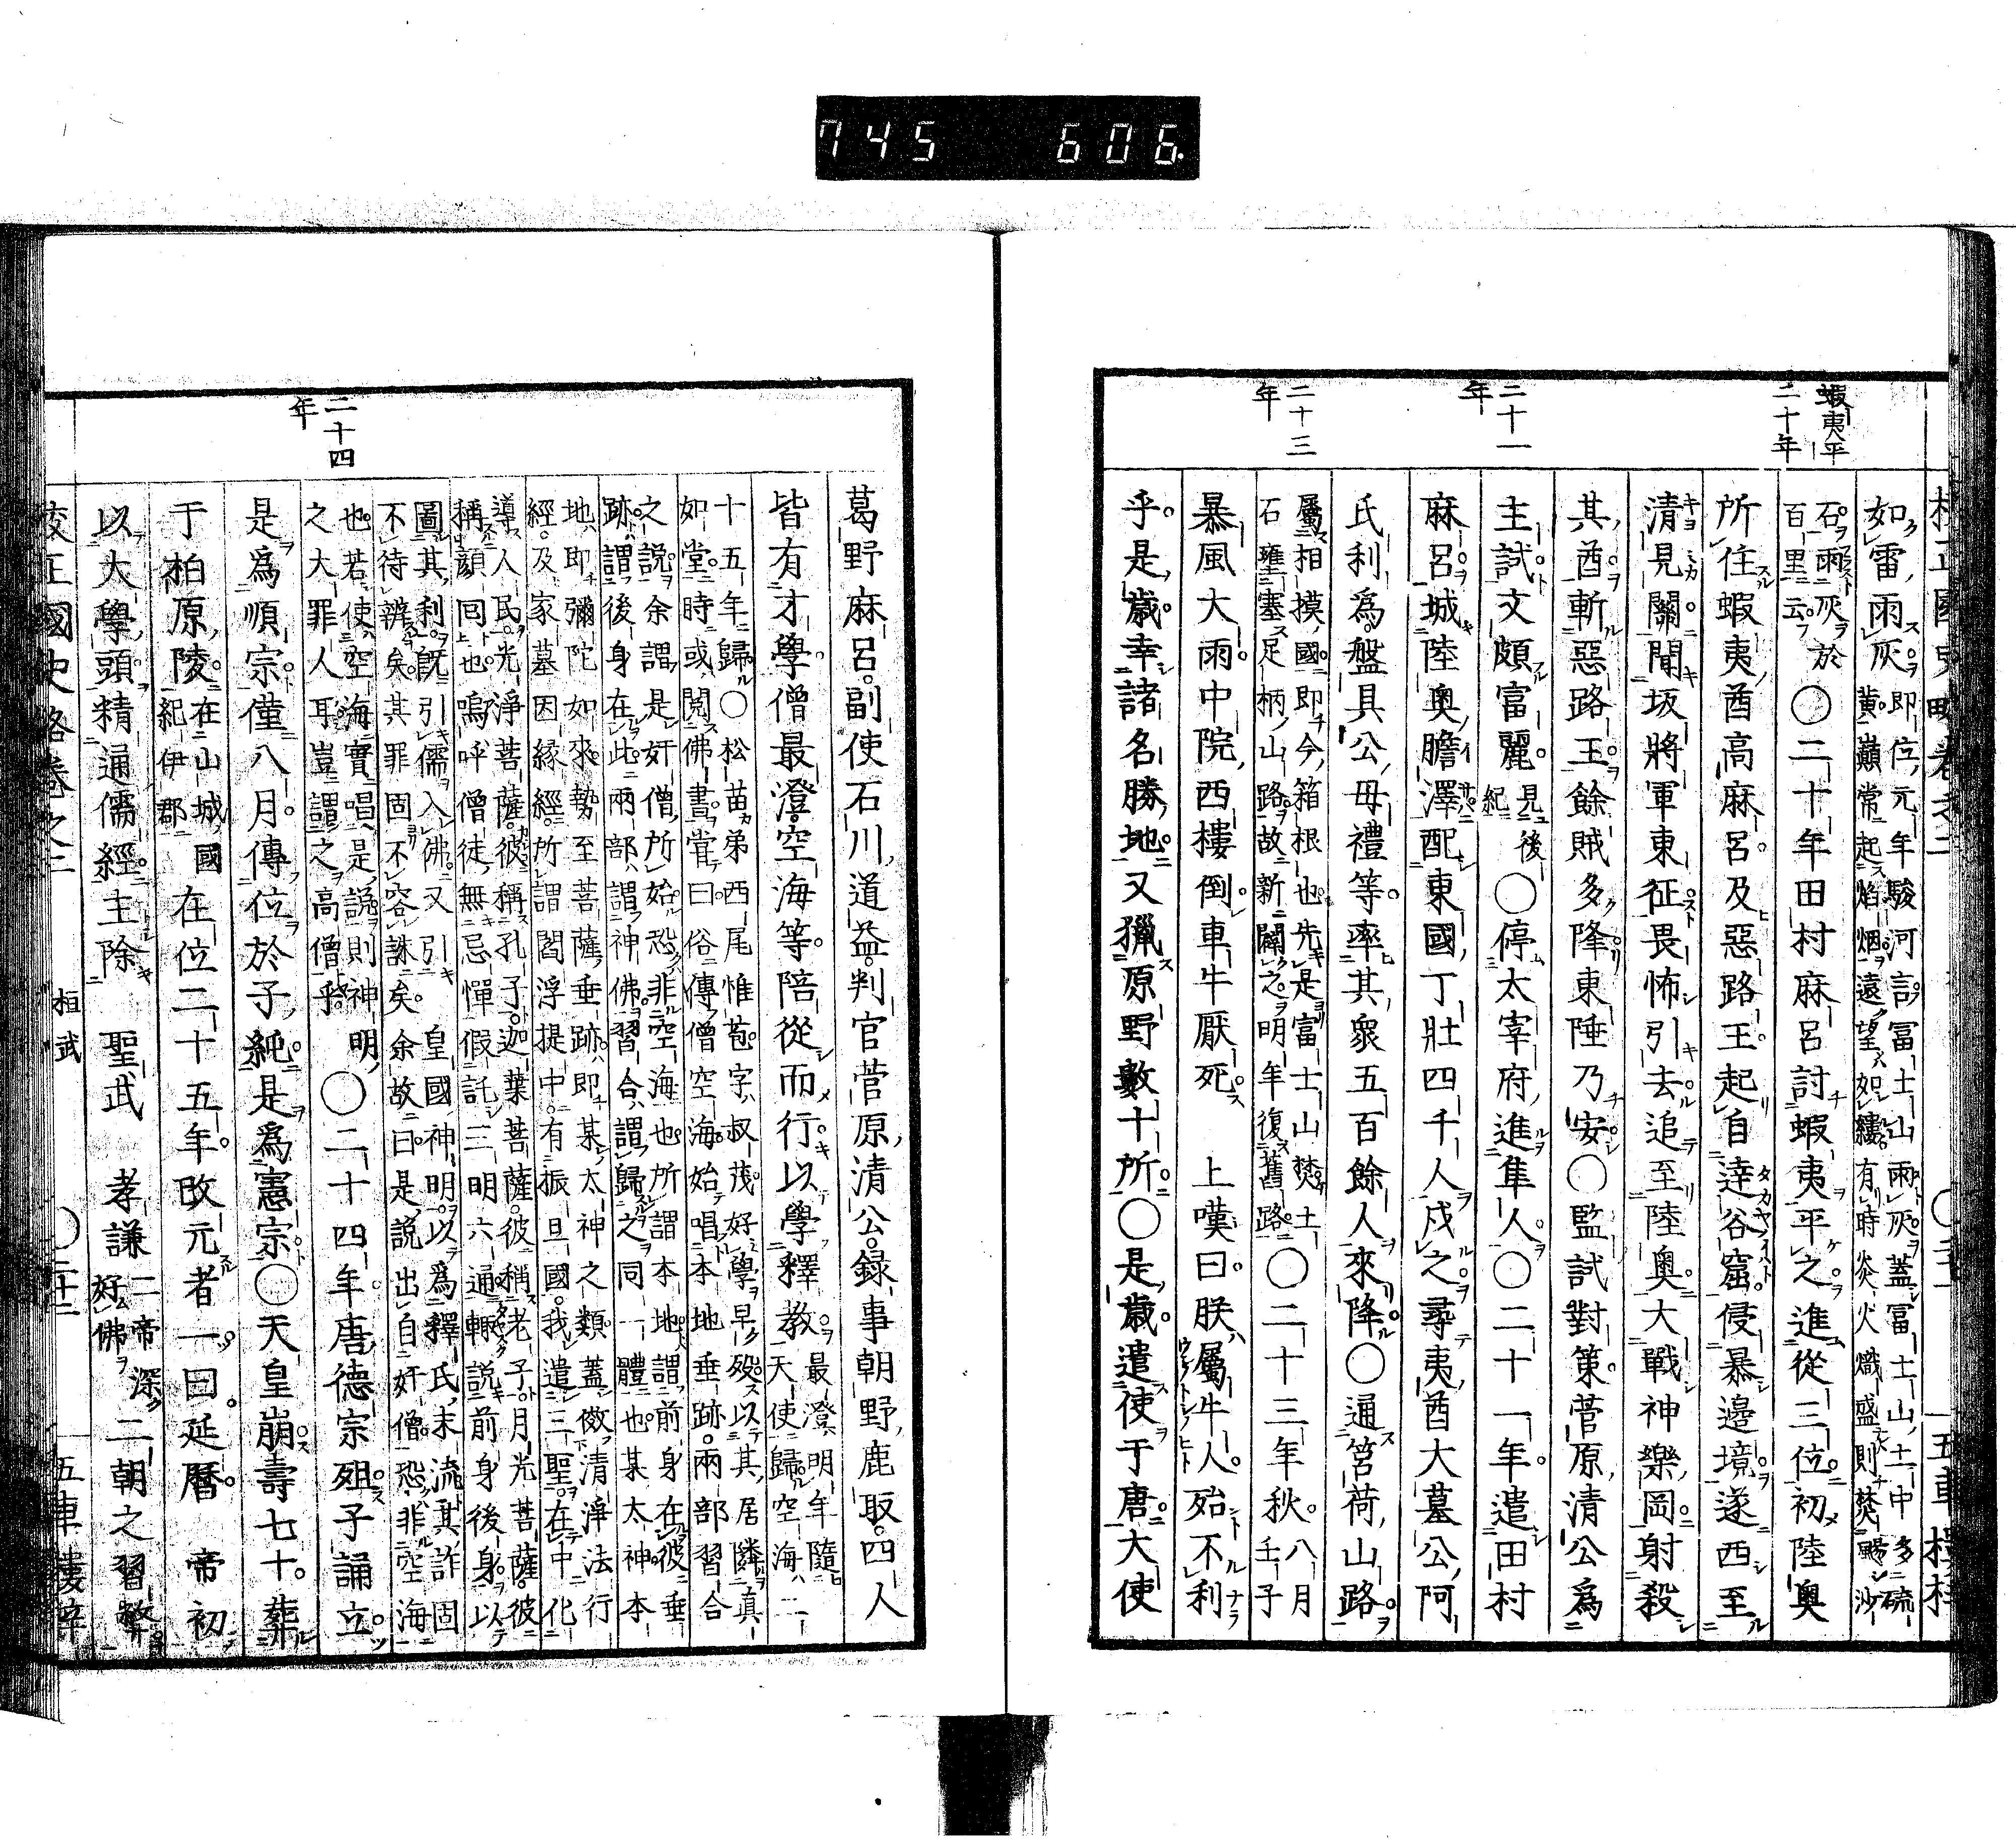 745 606.
蝦夷平
二十年
二十一年
二十三年
如雷雨灰即位元年駿河言冨士山雨灰蓋冨士山土中多硫
黄巓常起焰烟遠望如縷有時炎火熾盛則焚沙
石雨灰於
百里云○二十年田村麻呂討蝦夷平之進從三位初陸奥
所住蝦夷酋高麻呂及惡路王起自達谷窟侵暴邉境遂西至
清見關聞坂將軍東征畏怖引去追至陸奥大戰神樂岡射殺
其酋斬惡路王餘賊多降東陲乃安○監試對策菅原清公爲
主試文頗富麗見後紀○停太宰府進隼人○二十一年遣田村
麻呂城陸奥膽澤配東國丁壯四千人戍之尋夷酋大墓公阿
氏利爲盤具公母禮等率其衆五百餘人來降○通筥荷山路
屬相摸國即今箱根也先是富士山焚土
石壅塞足柄山路故新闢之明年復舊路○二十三年秋八月壬子
暴風大雨中院西樓倒車牛厭死 上嘆曰朕屬牛人殆不利
乎是歳幸諸名勝地又獵原野數十所○是歳遣使于唐大使
二十四年
葛野麻呂副使石川道益判官菅原清公録事朝野鹿取四人
皆有才學僧最澄空海等陪從而行以學釋教最澄明年隨
天使歸空海二
十五年歸○松苗弟西尾惟苞字叔茂好學早歿以其居隣真
如堂時或閲佛書嘗曰俗傳僧空海始唱本地垂跡兩部習合
之說余謂是奸僧所始恐非空海也所謂本地謂前身在彼垂
跡謂後身在此兩部謂神佛習合謂歸之同一體也某太神本
地即彌陀如來勢至菩薩垂跡即某太神之類蓋倣清淨法行
經及冢墓因縁經所謂閻浮提中有振旦國我遣三聖在中化
導人民光淨菩薩彼稱孔子迦葉菩薩彼稱老子月光菩薩彼
稱顔回也嗚呼僧徒無忌憚假託三明六通輙說前身後身以
圖其利既引儒入佛又引 皇國神明以爲釋氏末流其詐固
不待辨矣其罪固不容誅矣余故曰是說出自奸僧恐非空海
也若使空海實唱是說則神明
之大罪人耳豈謂之高僧乎○二十四年唐德宗殂子誦立
是爲順宗僅八月傳位於子純是爲憲宗○天皇崩壽七十葬
于柏原陵在山城國紀伊郡在位二十五年改元者一曰延暦 帝初
以大學頭精通儒經主除 聖武 孝謙二帝深好佛二朝之習弊
桓武